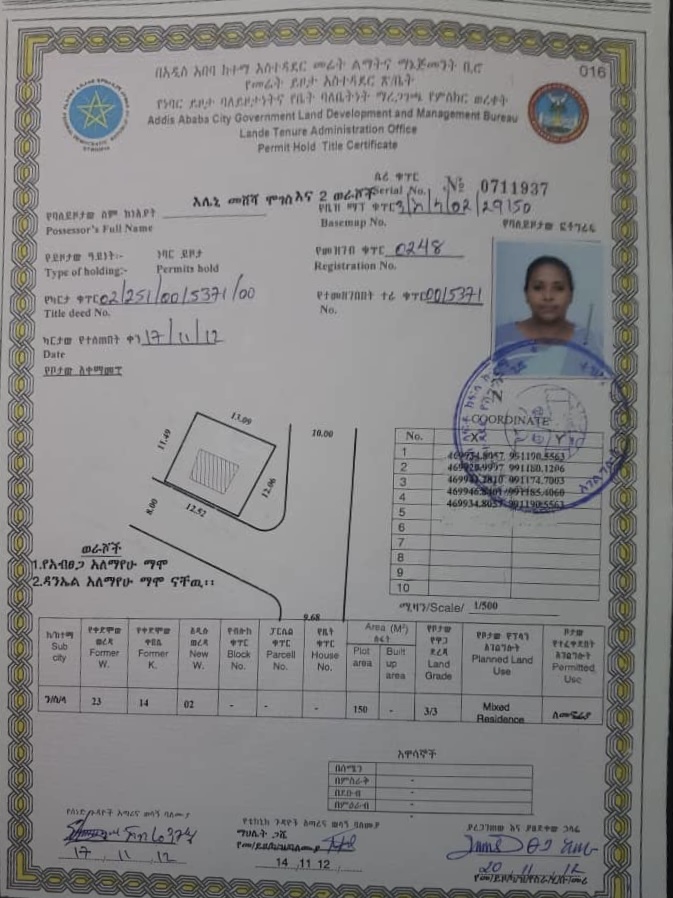 በአዲስ አበባ ከተማ አስተዳደር መሬት ልማትና ማኔጅመንት ቢሮ
016
የመሬት ይዞታ አስተዳደር ጽ/ቤት
የነባር ይዞታ ባለይዞታነትና የቤት ባለቤትነት ማረጋገጫ የምስክር ወረቀት
Addis Ababa City Government Land Development and Management Bureau
Lande Tenure Administration Office
Permit Hold Title Certificate
ሴሪ ቁጥር
Serial No. № 0711937
እሌኒ መሸሻ ሞገስ እና 2 ወራሾች
የባለይዞታው ስም ከነአያት
Possessor's Full Name
የቤዝ ማፕ ቁጥር
Basemap No.
የባለይዞታው ፎቶግራፍ
የይዞታው ዓይነት:- ነባር ይዞታ
Type of holding:- Permits hold
የመዝገብ ቁጥር 0248
Registration No.
የካርታ ቁጥር 02/251/00/5371/00
Title deed No.
የተመዘገበበት ተራ ቁጥር 00/5371
No.
ካርታው የተሰጠበት ቀን 17/11/12
Date
የቦታው አቀማመጥ
N
COORDINATE
No. X Y
1 469934.8057 991190.5563
2 991180.1206
3 991174.7003
4 991185.4060
5 469934.8057 991190.5563
6
7
8
9
10
13.09
11.49
12.06
12.52
10.00
8.00
9.68
ወራሾች
1.የአብፀጋ አለማየሁ ማሞ
2.ዳንኤል አለማየሁ ማሞ ናቸዉ፡፡
ሚዛን/Scale/ 1/500
ክ/ከተማ Sub city
የቀድሞው ወረዳ Former W.
የቀድሞው ቀበሌ Former K.
አዲሱ ወረዳ New W.
የብሎክ ቁጥር Block No.
ፓርሴል ቁጥር Parcell No.
የቤት ቁጥር House No.
Area (M²) ስፋት
Plot area
Built up area
የቦታው የዋጋ ደረጃ Land Grade
የቦታው የፕላን አገልግሎት Planned Land Use
ቦታው የተፈቀደበት አገልግሎት Permitted Use
ን/ስ/ላ 23 14 02 - - - 150 - 3/3 Mixed Residence ለመኖሪያ
አዋሳኞች
በሰሜን
በምስራቅ -
በደቡብ -
በምዕራብ -
17 , 11 , 12
ማህሌት ጋሼ
14 11 12
ያረጋገጠው እና ያፀደቀው ኃላፊ
20 11 12